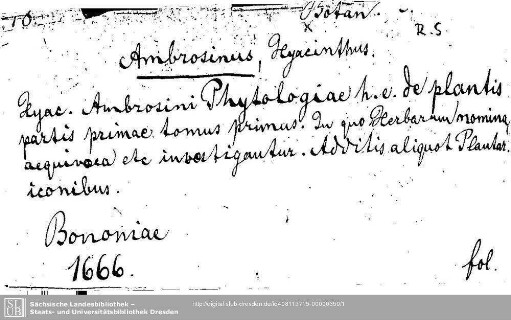 Botan.
R.S
Ambrosinus, Hyacinthus.
Hyac. Ambrosini Phytologiae h.e. de plantis
partis primae tomus primus. In quo Herbarum nomina
aequivoca etc investigantur. Additis aliquot Plantar.
iconibus.
Bononiae
1666.
fol.
SLUB
Sächsische Landesbibliothek –
Staats- und Universitätsbibliothek Dresden